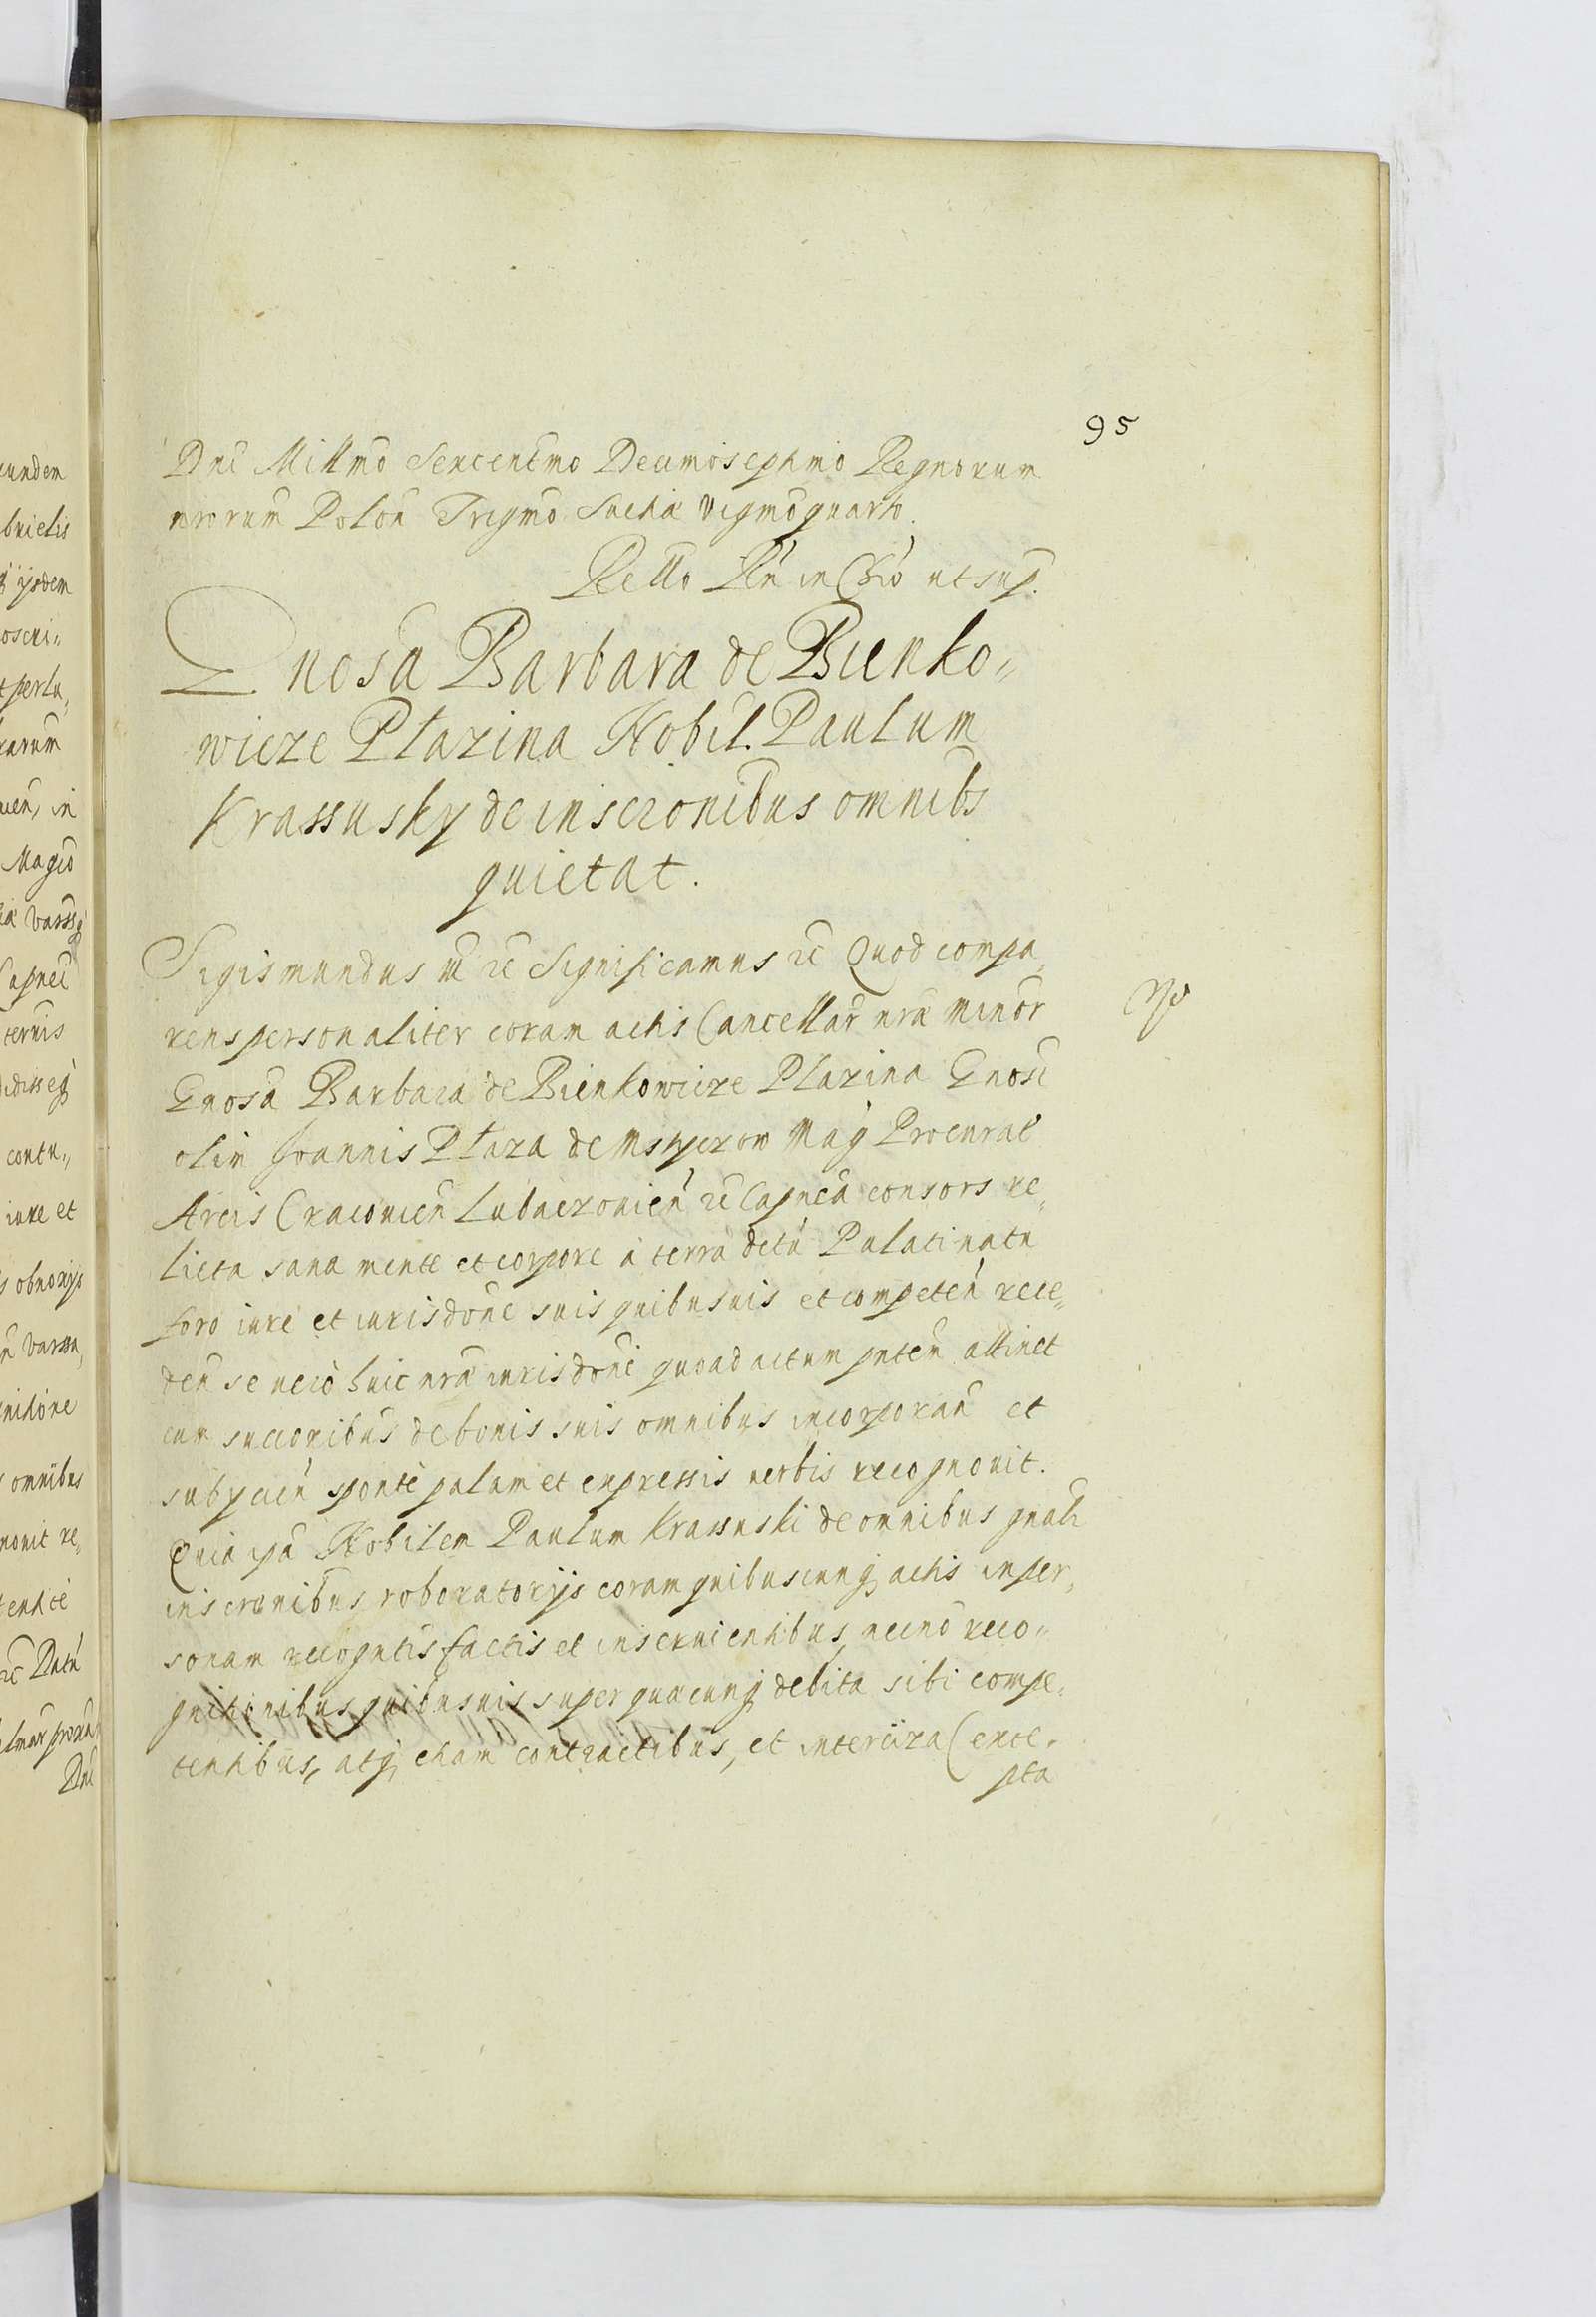 95
Dni Millmo Sexcentmo Decimoseptimo Regnorum
nrorum Polon Trigmo Suetiæ vigmoquarto.
Rello Rn in Chio ut sup.
Gnosa Barbara de Bienko„
wicze Płazina Nobil. Paulum
Krassusky de inscionibus omnibs
quietat.
Sigismundus III rc Significamus rc Quod compa„
rens personaliter coram actis Cancellar nræ minor
Gnosa Barbara de Bienkowicze Płazina Gnosi
olim Joannis Płaza de Msticzow Mag Procurat
Arcis Cracovien Lubaczovien rc Capnea consors re„
licta sana mente et corpore a terra dictu Palatinatu
foro iure et iurisdone suis quibusuis et competen rece„
den se vero huic nræ iurisdoni quoad actum pnten attinet
cum succoribus de bonis suis omnibus incorporan et
subycien sponte palam et expressis verbis recognovit.
Quia ipa Nobilem Paulum Krassuski de omnibus gnali
inscronibus roboratorijs coram quibuscunq actis in per„
sonam recognitis factis et inseruientibus, necno reco„
gnitionibus quibusuis super quæcunq debita sibi compe„
tentibus, atq etiam contractibus, et interciza (exce„
pta
cundem
brielis
ijsdem
oscri„
perla„
rarum
in
Magco
Varss
Capnei
ternis
contu„
iure et
obnoxijs
Varssa„
omnibus
novit re„
rc Datu
Dni